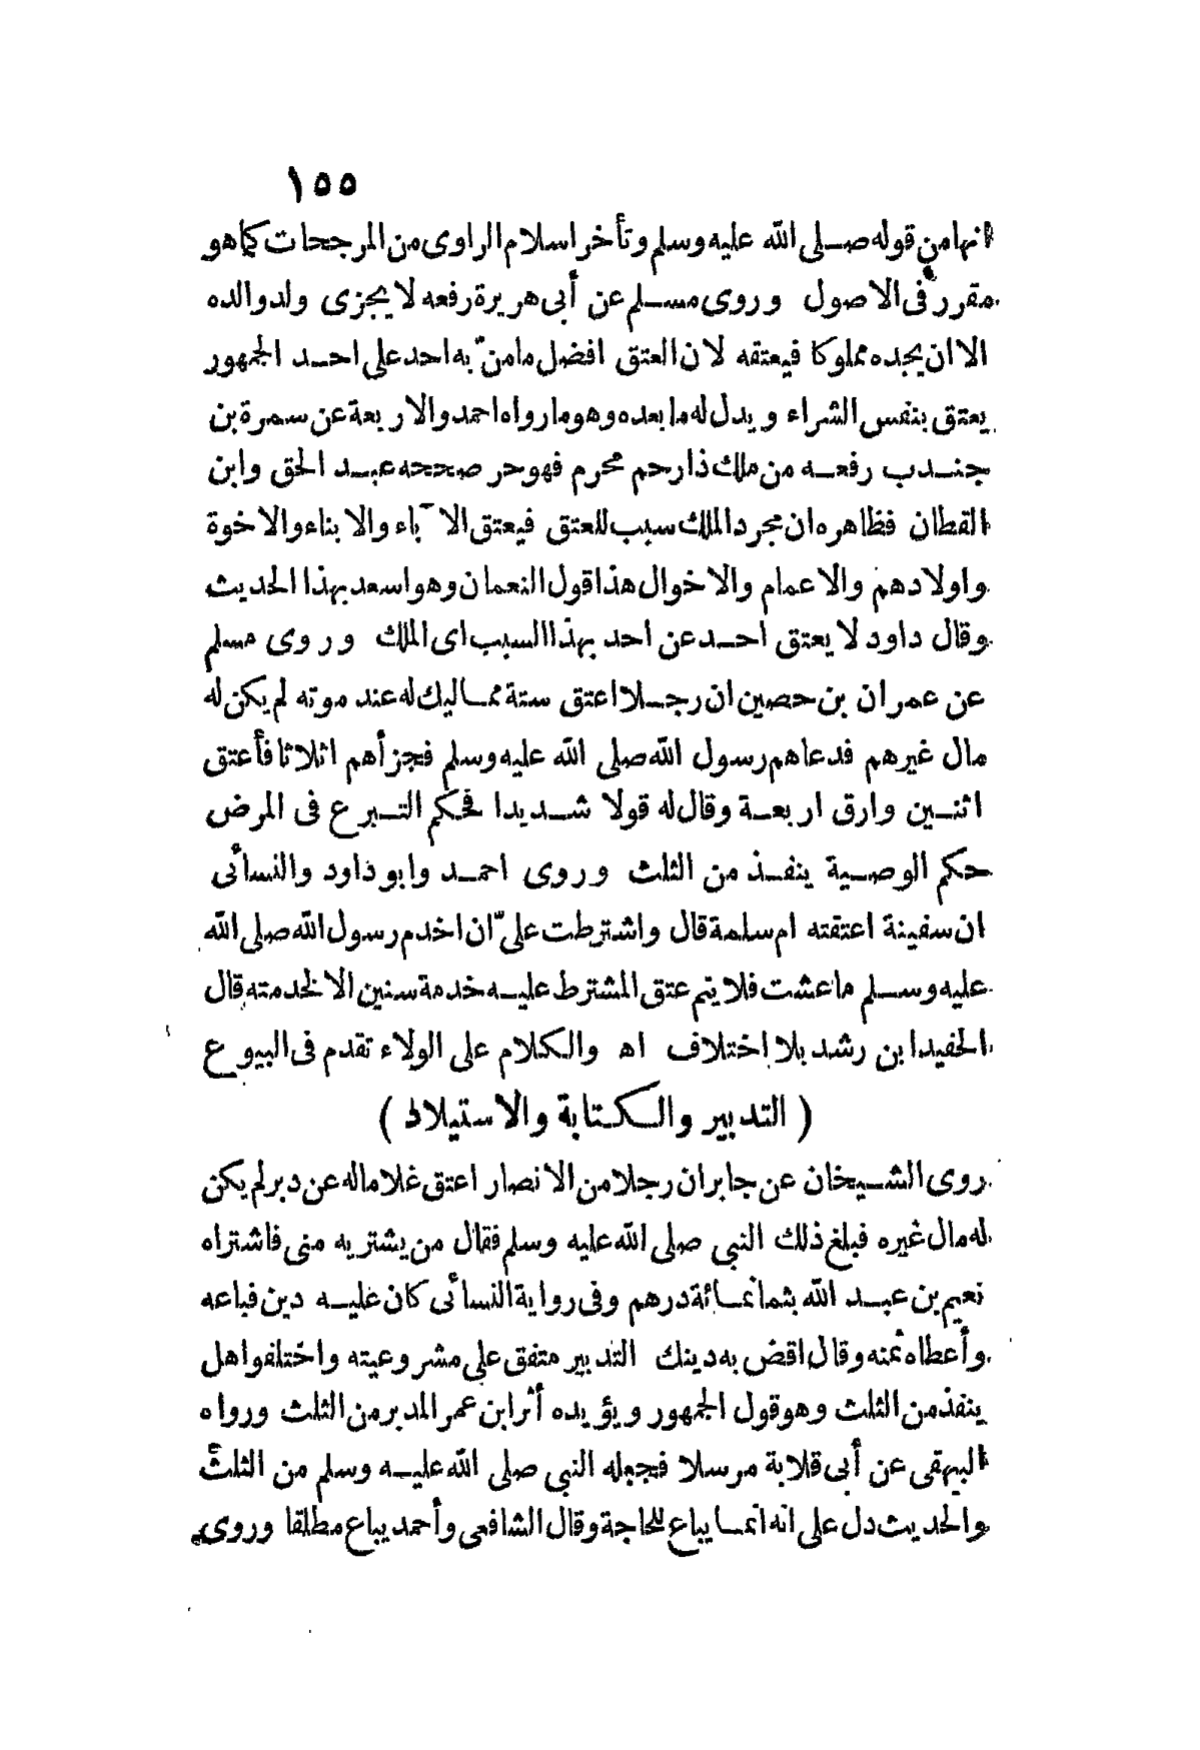 ١٥٥
انها من قوله صلى الله عليه وسلم وتأخر اسلام الراوى من المرجحات كما هو
مقرر فى الاصول وروى مسلم عن أبى هريرة رفعه لا يجزى ولد والده
الا ان يجده مملوكا فيعتقه لان العتق افضل ما منّ به احد على احد الجمهور
يعتق بنفس الشراء ويدل له ما بعده وهو ما رواه احمد والاربعة عن سمرة بن
جندب رفعه من ملك ذا رحم محرم فهو حر صححه عبد الحق وابن
القطان فظاهره ان مجرد الملك سبب للعتق فيعتق الآباء والابناء والاخوة
واولادهم والاعمام والاخوال هذا قول النعمان وهو اسعد بهذا الحديث
وقال داود لا يعتق احد عن احد بهذا السبب اى الملك وروى مسلم
عن عمران بن حصين ان رجلا اعتق ستة مماليك له عند موته لم يكن له
مال غيرهم فدعاهم رسول الله صلى الله عليه وسلم فجزأهم اثلاثا فأعتق
اثنين وارق اربعة وقال له قولا شديدا فحكم التبرع فى المرض
حكم الوصية ينفذ من الثلث وروى احمد وابو داود والنسائى
ان سفينة اعتقته ام سلمة قال واشترطت علىّ ان اخدم رسول الله صلى الله
عليه وسلم ما عشت فلا يتم عتق المشترط عليه خدمة سنين الا لخدمته قال
الحفيد ابن رشد بلا اختلاف اه والكلام على الولاء تقدم فى البيوع
( التدبير والكتابة والاستيلاد )
روى الشيخان عن جابر ان رجلا من الانصار اعتق غلاما له عن دبر لم يكن
له مال غيره فبلغ ذلك النبى صلى الله عليه وسلم فقال من يشتريه منى فاشتراه
نعيم بن عبد الله بثمانمائة درهم وفى رواية النسائى كان عليه دين فباعه
وأعطاه ثمنه وقال اقض به دينك التدبير متفق على مشروعيته واختلفوا هل
ينفذ من الثلث وهو قول الجمهور ويؤيده أثر ابن عمر المدبر من الثلث ورواه
البيهقى عن أبى قلابة مرسلا فجعله النبى صلى الله عليه وسلم من الثلث
والحديث دل على انه انما يباع للحاجة وقال الشافعى وأحمد يباع مطلقا وروى